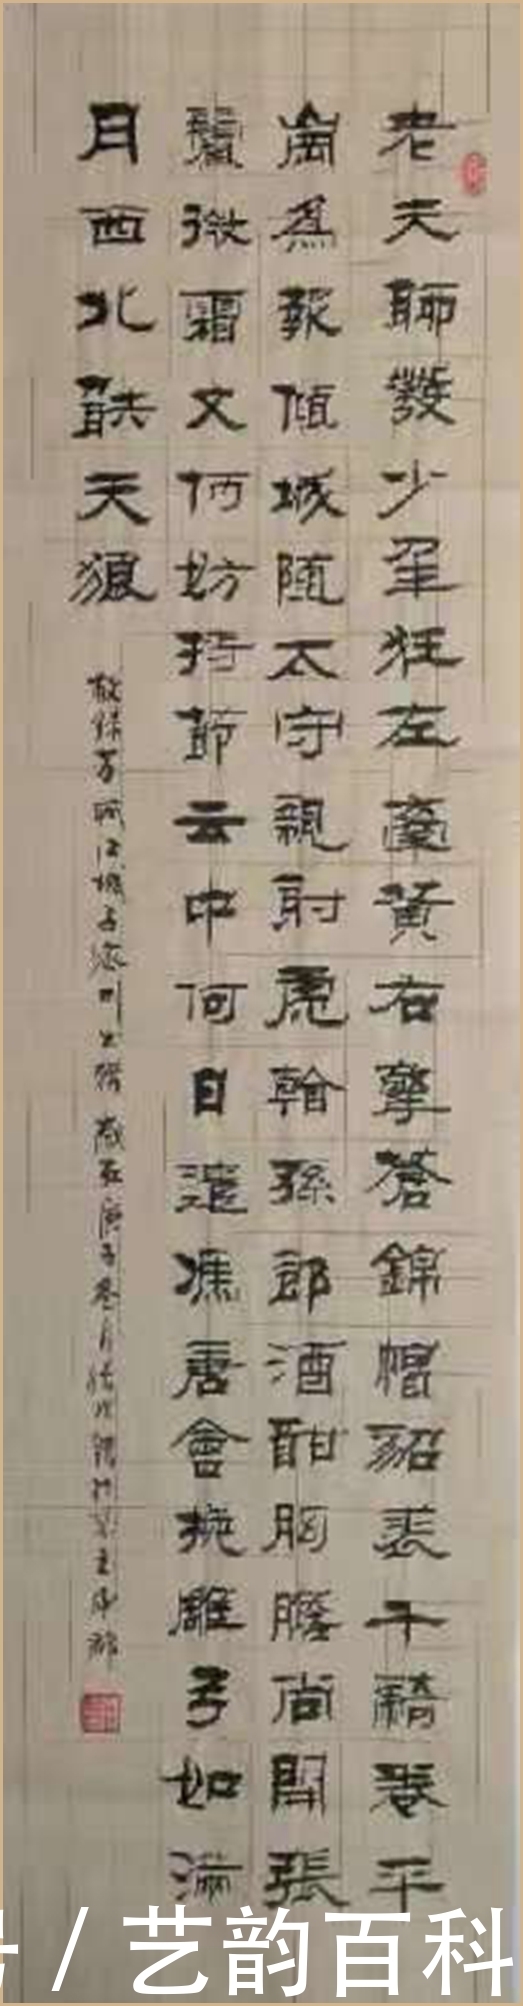 老夫聊發少年狂左牽黃右擎蒼錦帽貂裘千騎卷平
崗為報傾城隨太守親射虎看孫郎酒酣胸膽尚開張
鬢微霜又何妨持節云中何日遣馮唐會挽雕弓如滿
月西北望天狼
敬錄蘇軾江城子密州出獵 歲在庚子
号 / 艺韵百科